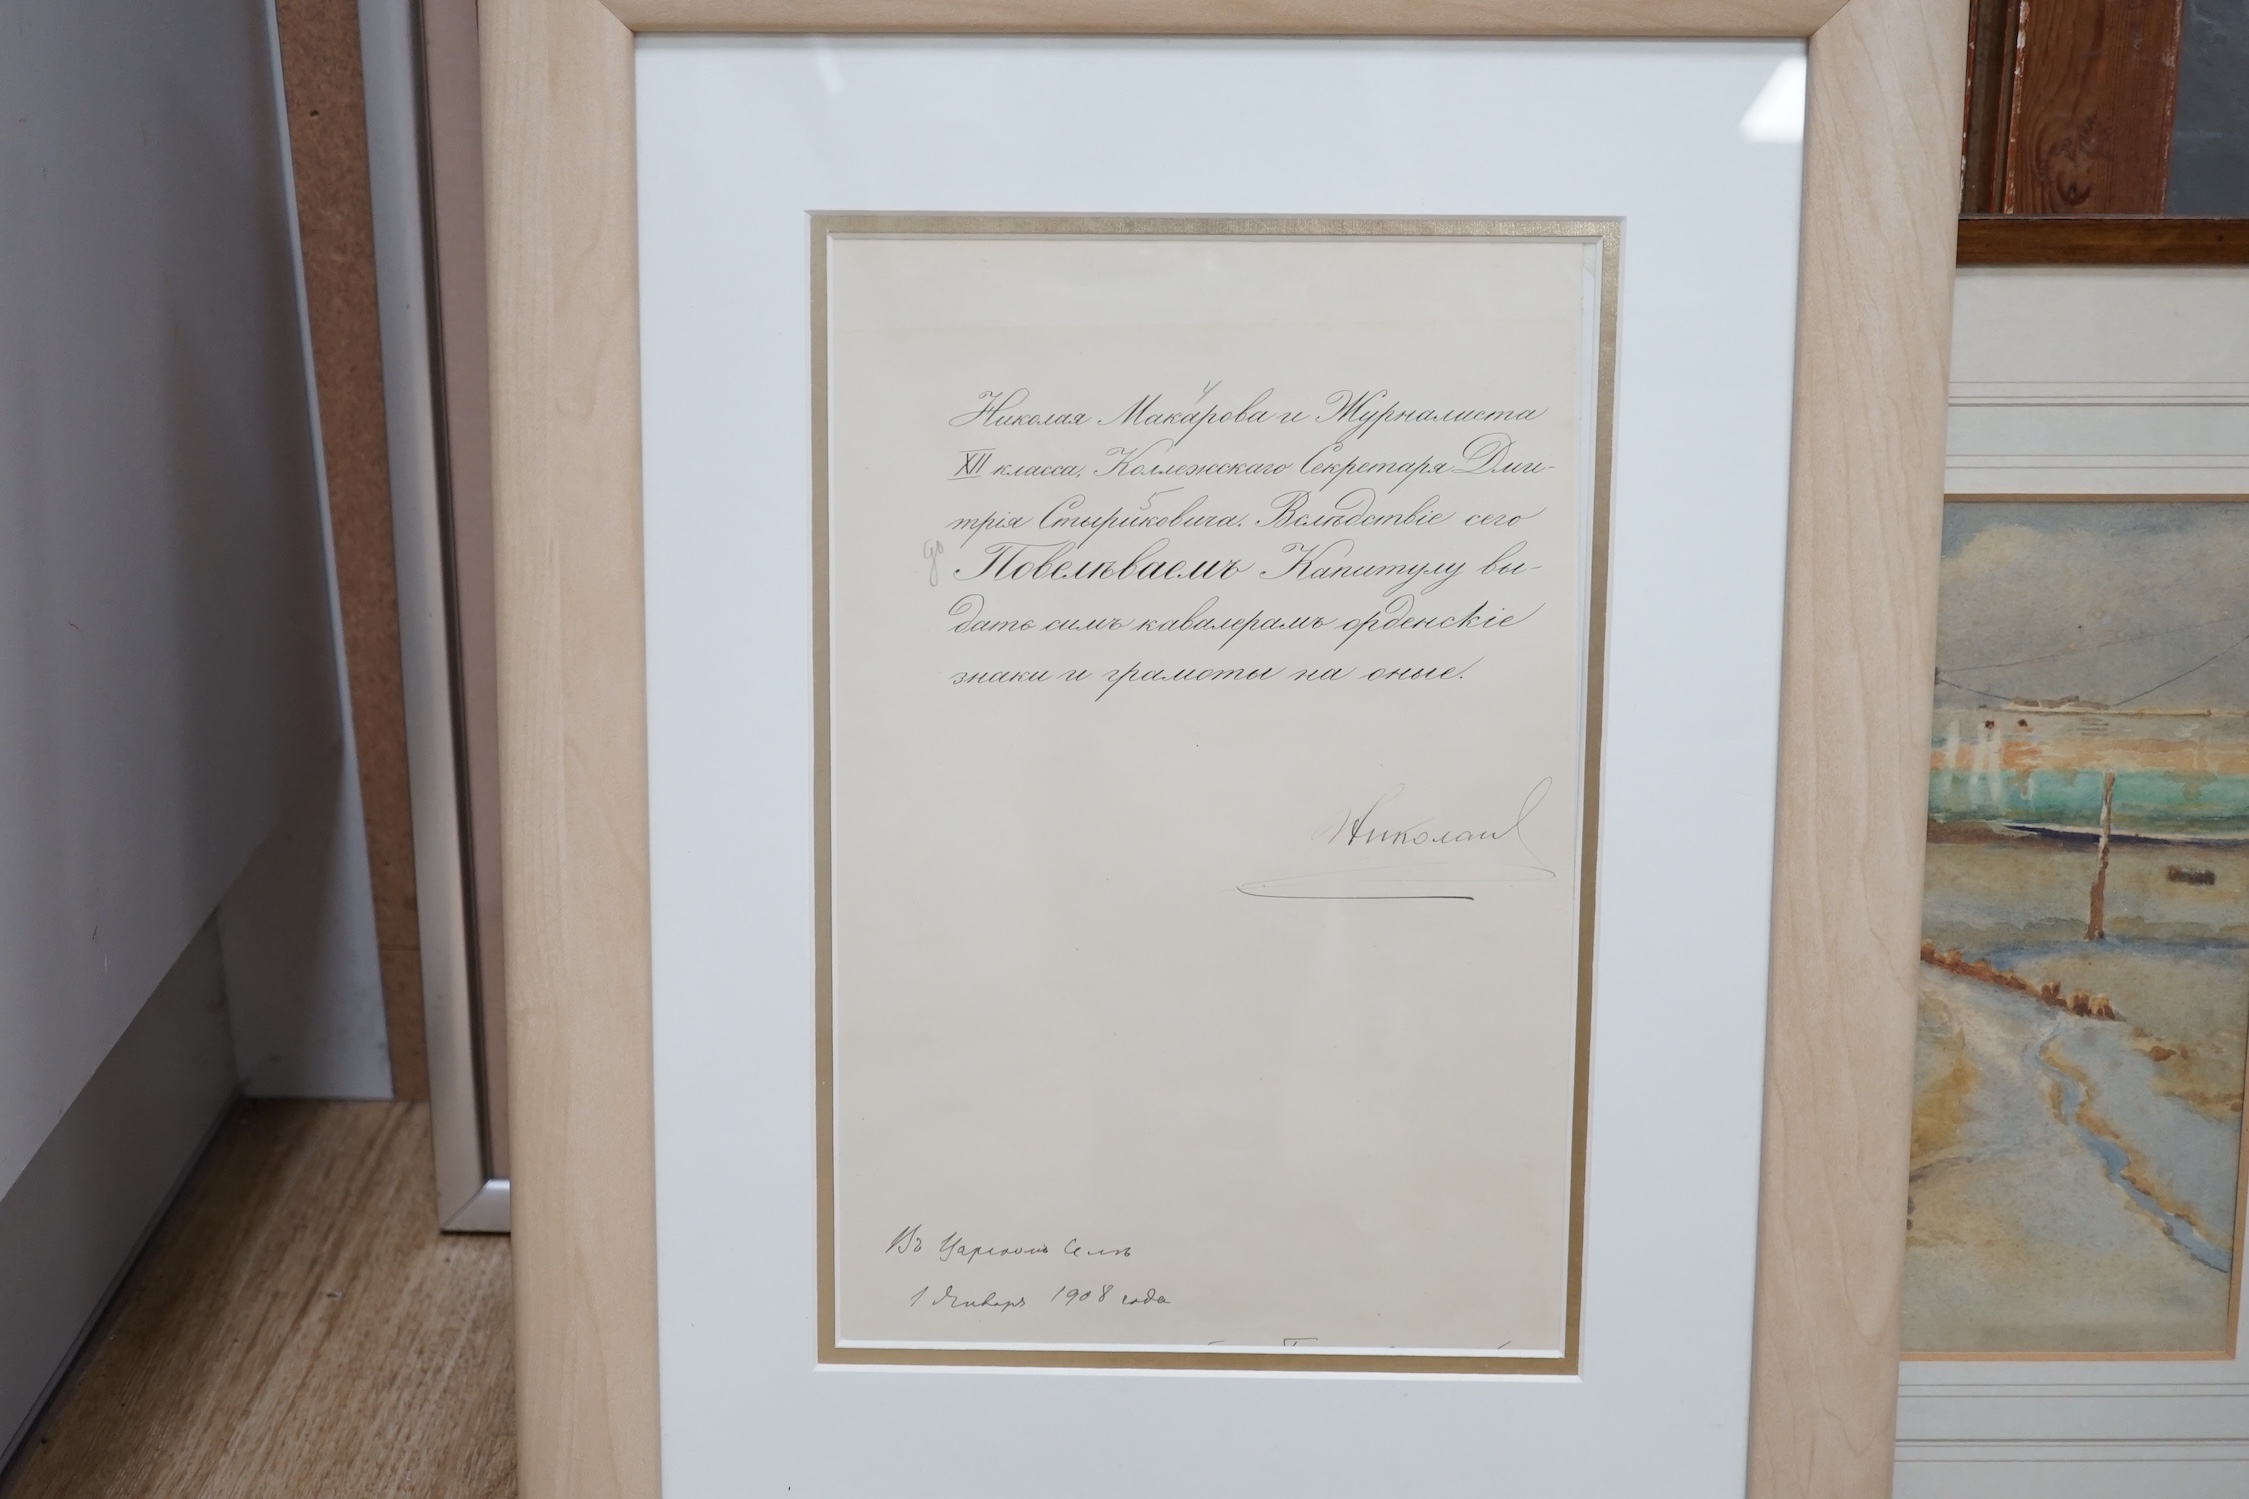 Николая Макарова и Журналиста
XII класса, Коллежскаго Секретаря Дми-
трія Стыриковича. Вслѣдствіе сего
Повелѣваемъ Капитулу вы-
дать симъ кавалерамъ орденскіе
знаки и грамоты на оные.
Николай
Въ Царскомъ Селѣ
1 Января 1908 года